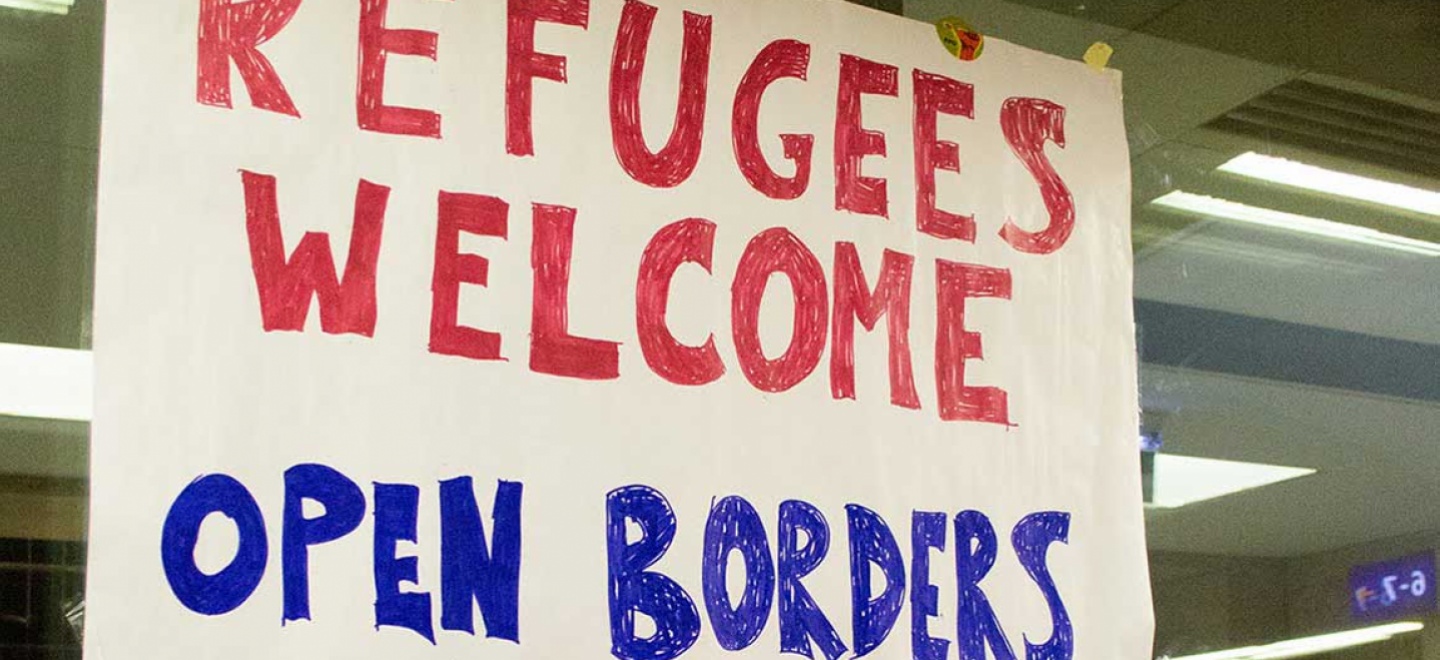 REFUGEES
WELCOME
OPEN BORDERS